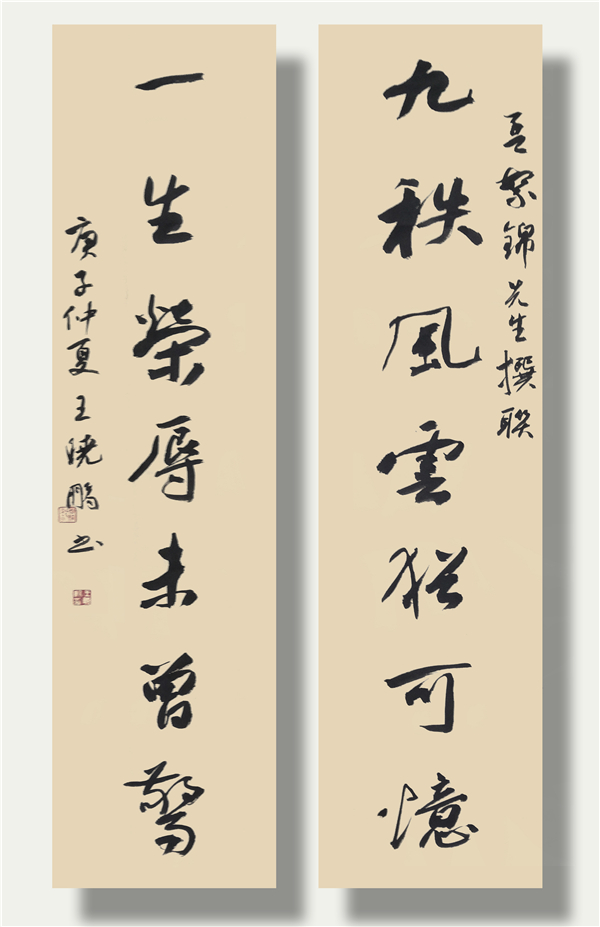 錦先生撰聯
九秩風雲猶可憶
一生榮辱未曾驚
庚子仲夏王曉鵬书